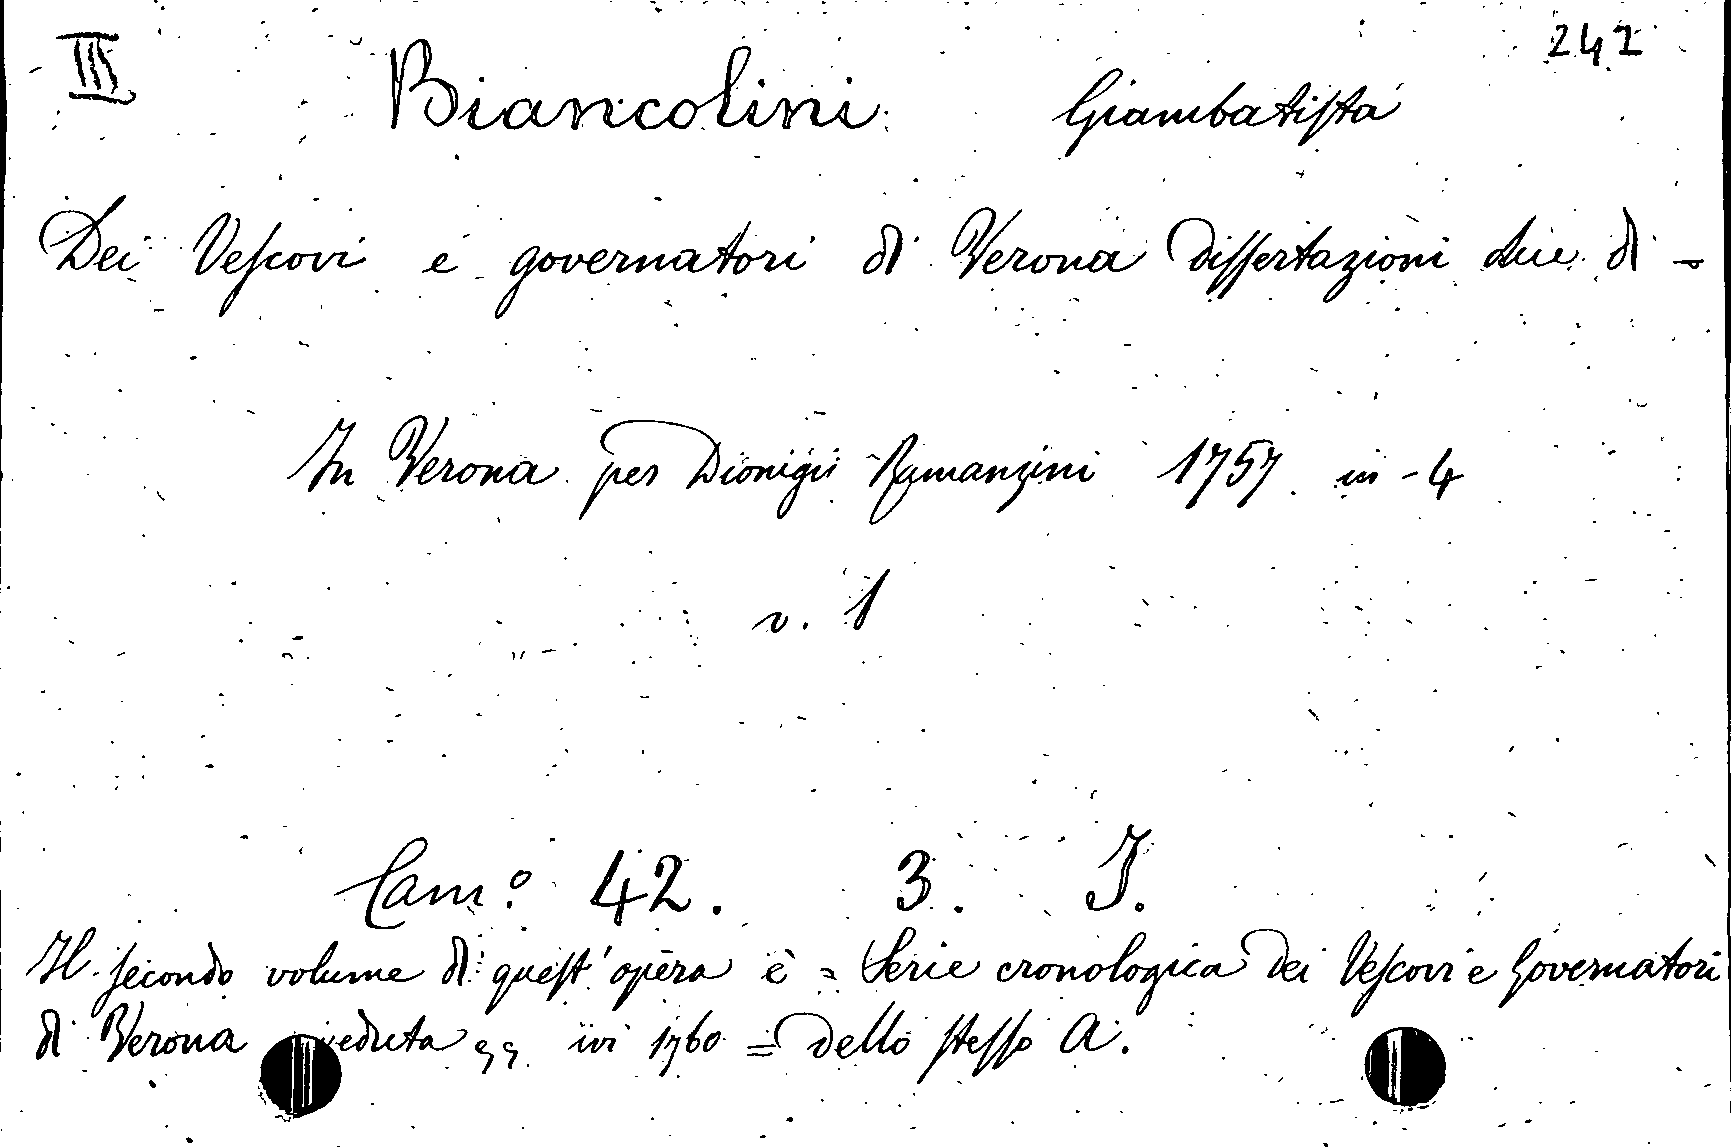 III 242
Biancolini Giambatista
Dei Vescovi e governatori di Verona dissertazioni due di -
In Verona per Dionigi Ramanzini 1757 in-4
v. 1
Cam.º 42. 3. I.
Il secondo volume di quest'opera è = Serie cronologica dei Vescovi e Governatori
di Verona ivi 1760 = dello stesso A.